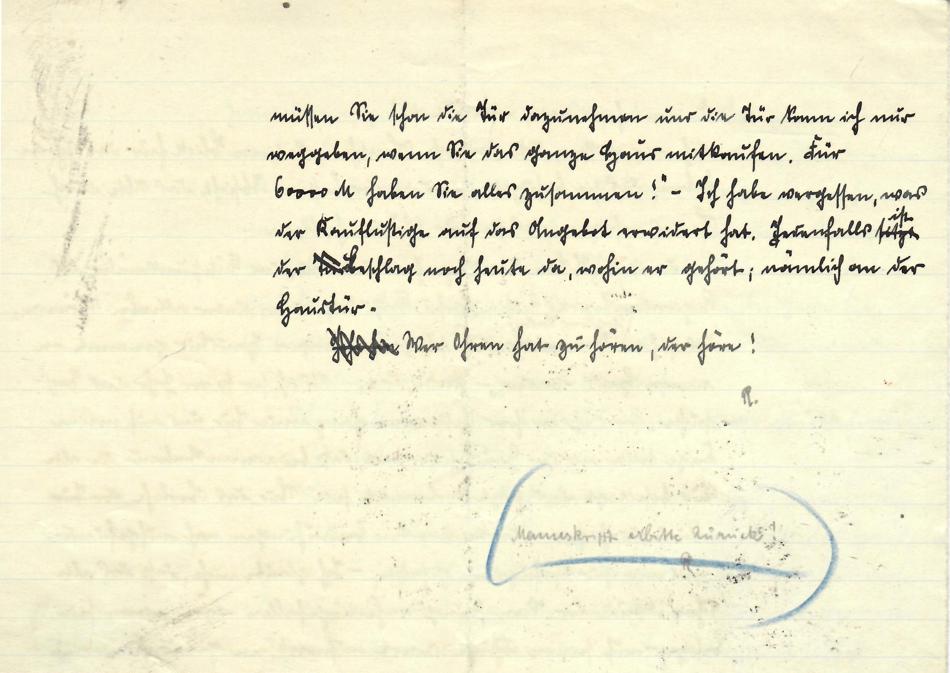 müssen Sie schon die Tür dazunehmen und die Tür kann ich nur
weggeben, wenn Sie das ganze Haus mitkaufen. Für
60000 M haben Sie alles zusammen!" – Ich habe vergessen, was
der Kauflustige auf das Angebot erwidert hat. Jedenfalls sitzt ist
der Beschlag noch heute da, wohin er gehört; nämlich an der
Haustür.
Wer Ohren hat zu hören, der höre!
R.
Manuskript erbitte zurück!
R.